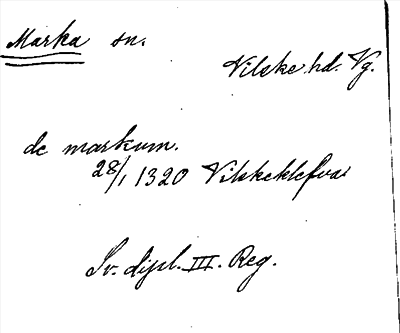 Marka sn.
Vilske hd. Vg.
de markum.
28/1 1320 Vilskeklefva
Sv. dipl. III. Reg.